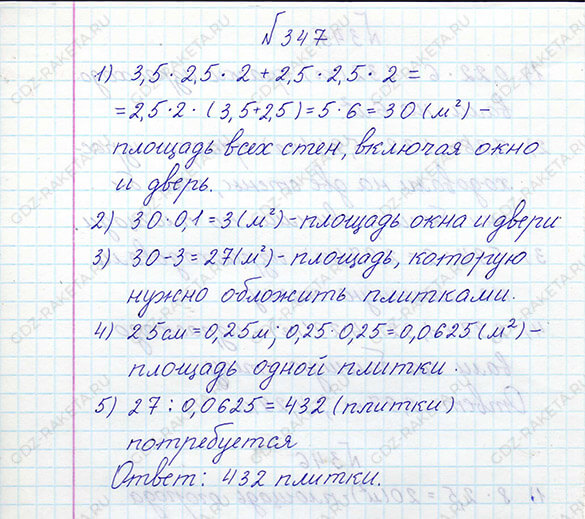 № 347
1) 3,5 · 2,5 · 2 + 2,5 · 2,5 · 2 =
= 2,5 · 2 · (3,5+2,5) = 5 · 6 = 30 (м²) –
площадь всех стен, включая окно
и дверь.
2) 30 · 0,1 = 3 (м²) – площадь окна и двери
3) 30 – 3 = 27 (м²) – площадь, которую
нужно обложить плитками.
4) 25 см = 0,25 м; 0,25 · 0,25 = 0,0625 (м²) –
площадь одной плитки.
5) 27 : 0,0625 = 432 (плитки)
потребуется
Ответ: 432 плитки.
GDZ-RAKETA.RU